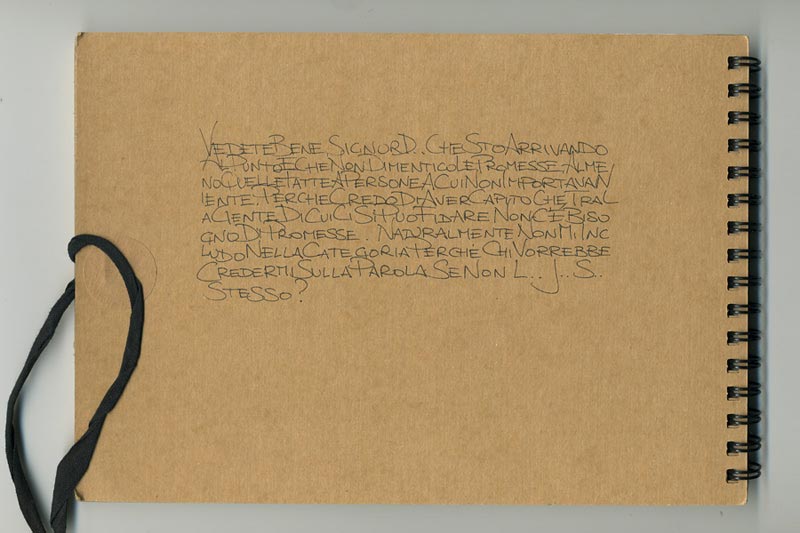 VEDETE BENE SIGNOR D.. CHE STO ARRIVANDO
AL PUNTO E CHE NON DIMENTICO LE PROMESSE. ALME
NO QUELLE FATTE A PERSONE A CUI NON IMPORTAVA N
IENTE. PERCHE CREDO DI AVER CAPITO CHE TRA L
A GENTE DI CUI CI SI PUO FIDARE NON C'E BISO
GNO DI PROMESSE. NATURALMENTE NON MI INC
LUDO NELLA CATEGORIA PERCHÉ CHI VORREBBE
CREDERMI SULLA PAROLA SE NON L.. J.. S..
STESSO?